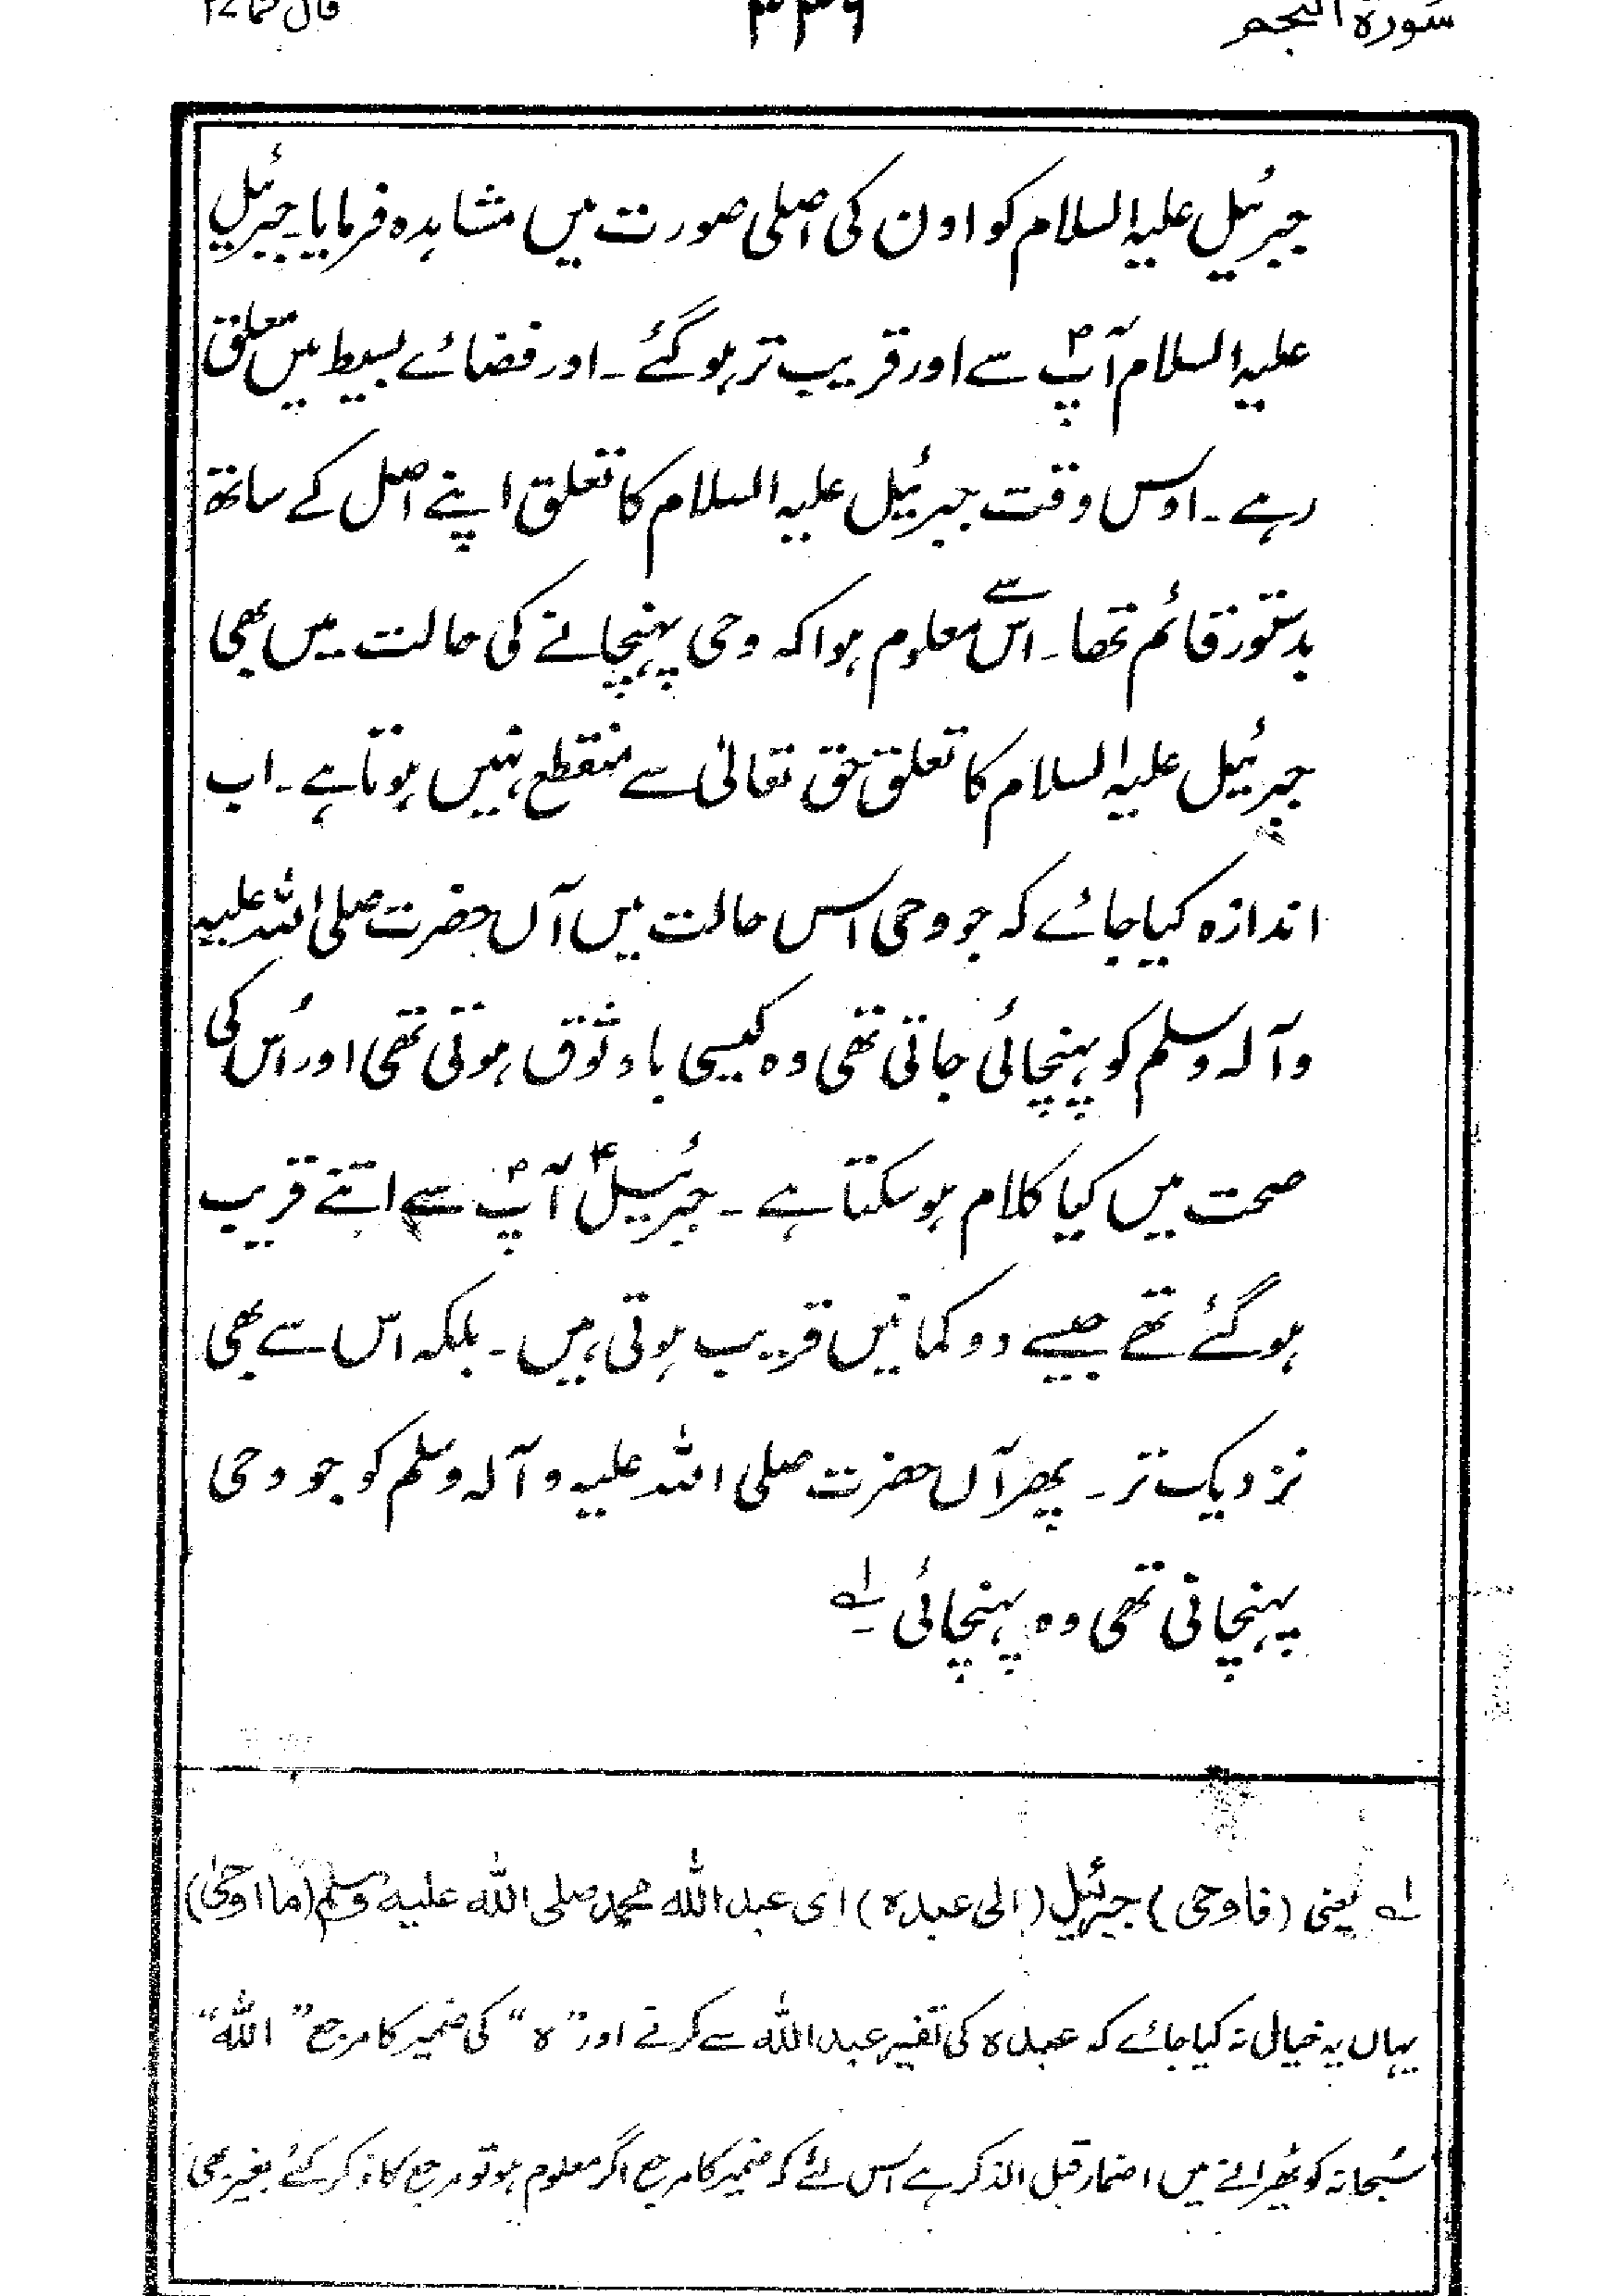 سورة النجم ۳۳۶ قال فما ۲۷
جبرئیل علیہ السلام کو اون کی اصلی صورت میں مشاہدہ فرمایا۔ جبرئیل
علیہ السلام آپؐ سے اور قریب تر ہو گئے۔ اور فضائے بسیط میں معلق
رہے۔ اوس وقت جبرئیل علیہ السلام کا تعلق اپنے اصل کے ساتھ
بدستور قائم تھا۔ اس سے معلوم ہوا کہ وحی پہنچانے کی حالت میں بھی
جبرئیل علیہ السلام کا تعلق حق تعالیٰ سے منقطع نہیں ہوتا ہے۔ اب
اندازہ کیا جائے کہ جو وحی اس حالت میں آں حضرت صلی اللہ علیہ
وآلہ وسلم کو پہنچائی جاتی تھی وہ کیسی باوثوق ہوتی تھی اور اُس کی
صحت میں کیا کلام ہو سکتا ہے۔ جبرئیلؑ آپؐ سے اتنے قریب
ہو گئے تھے جیسے دو کمانیں قریب ہوتی ہیں۔ بلکہ اس سے بھی
نزدیک تر۔ پھر آں حضرت صلی اللہ علیہ وآلہ وسلم کو جو وحی
پہنچانی تھی وہ پہنچائی لے
لے یعنی (فاوحی) جبرئیل (الی عبدہ) ای عبد اللہ محمد صلی اللہ علیہ وسلم (ما اوحیٰ)
یہاں یہ خیال نہ کیا جائے کہ عبدہ کی تفسیر عبد اللہ سے کرنے اور "ہ" کی ضمیر کا مرجع "اللہ"
سُبحانہ کو ٹھیرانے میں اضمار قبل الذکر ہے اس لئے کہ ضمیر کا مرجع اگر معلوم ہو تو مرجع کا ذکر کئے بغیر بھی